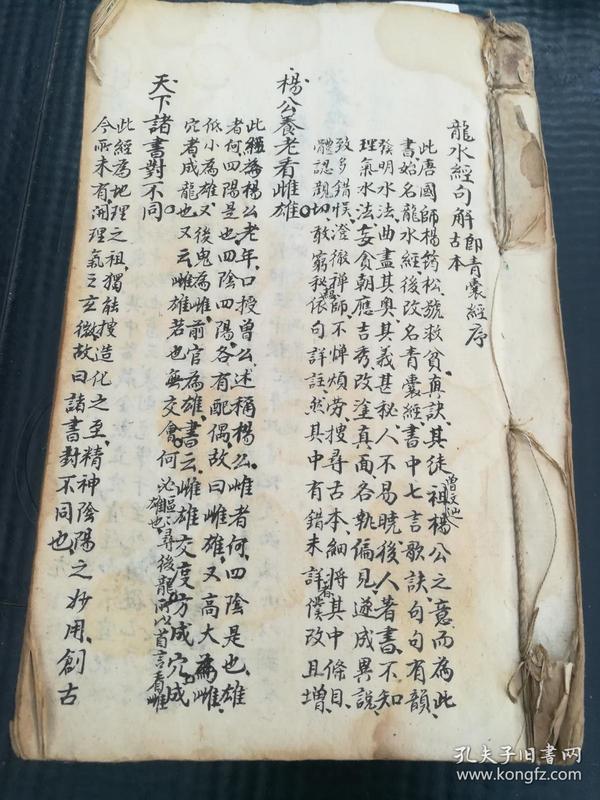 龍水經句解古本即青囊經序
此唐國師楊筠松號救貧真訣其徒曾文辿祖楊公之意而為此
書始名龍水經後改名青囊經書中七言歌訣句句有韻
發明水法曲盡其奧其義甚秘人不易曉後人著書不知
理氣水法妄貪朝應吉秀改塗真面各執偏見遂成異說
致多錯悞澄徹禪師不惮煩勞搜尋古本細將其中條目
體認親切敢窮秘依句詳註然其中有錯未詳僕改且增
楊公養老看雌雄
此經為楊公老年口授曽公述稱楊公雌者何四陰是也雄
者何四陽是也四陰四陽各有配偶故曰雌雄又高大為雌
低小為雄又後鬼為雌前官為雄書云雌雄交度方成穴成
穴者成龍也又云雌雄若也無交會何必區區尋後龍所以首言看雌
雄也
天下諸書對不同
此經為地理之祖獨能搜造化之至精神陰陽之妙用創古
今所未有開理氣之玄微故曰諸書對不同也
孔夫子旧书网
www.kongfz.com